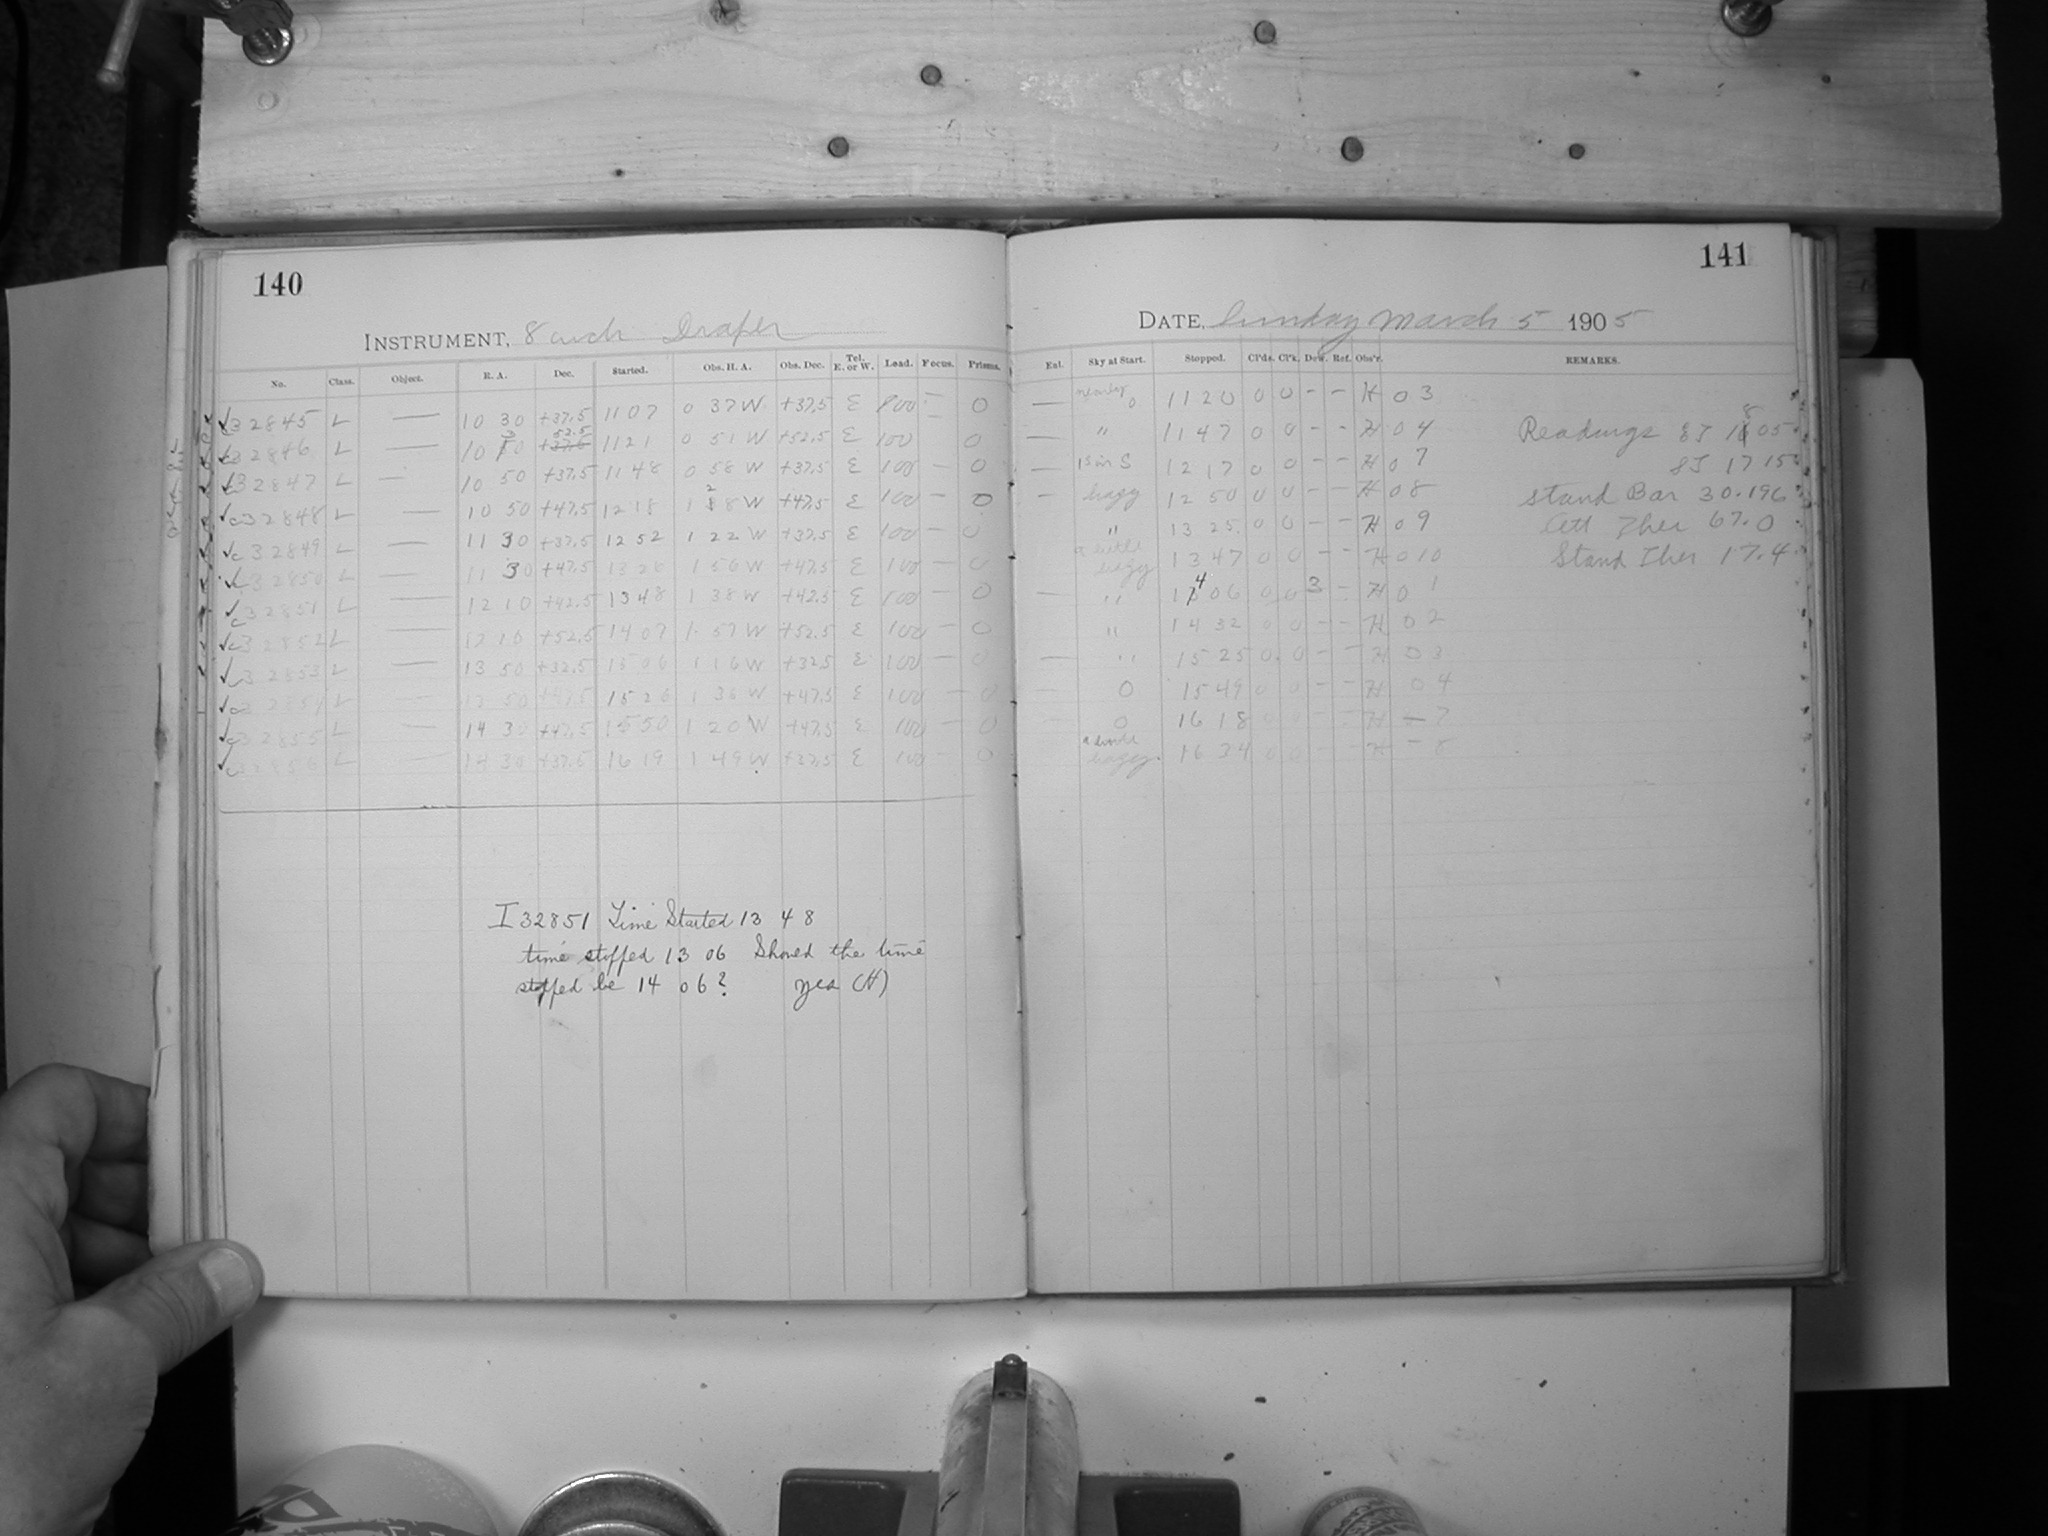 140
INSTRUMENT, 8 inch Draper
No. Class. Object. R. A. Dec. Started. Obs. H. A. Obs. Dec. Tel. E. or W. Load. Focus. Prisms.
32845 L — 10 30 +37.5 11 07 0 37 W +37.5 E 100 — 0
32846 L — 10 30 +52.5 11 21 0 51 W +52.5 E 100 0
32847 L — 10 50 +37.5 11 48 0 58 W +37.5 E 100 — 0
c 32848 L — 10 50 +47.5 12 18 1 28 W +47.5 E 100 — 0
c 32849 L — 11 30 +37.5 12 52 1 22 W +37.5 E 100 — 0
32850 L — 11 30 +47.5 13 26 1 56 W +47.5 E 100 — 0
c 32851 L — 12 10 +42.5 13 48 1 38 W +42.5 E 100 — 0
c 32852 L — 12 10 +52.5 14 07 1 57 W +52.5 E 100 — 0
32853 L — 13 50 +32.5 15 06 1 16 W +32.5 E 100 — 0
32854 L — 13 50 +47.5 15 26 1 36 W +47.5 E 100 — 0
c 32855 L — 14 30 +47.5 15 50 1 20 W +47.5 E 100 — 0
c 32856 L — 14 30 +37.5 16 19 1 49 W +37.5 E 100 — 0
I 32851 Time Started 13 48
time stopped 13 06 Should the time
stopped be 14 06? yes (H)
141
DATE, Sunday March 5 1905
Ent. Sky at Start. Stopped. Cl'ds. Cl'k. Dew. Ref. Obs'r. REMARKS.
— nearly 0 11 20 0 0 - - H 0 3
— " 11 47 0 0 - - H 0 4 Readings 8J 18 05
— 1s in S 12 17 0 0 - - H 0 7 8J 17 15
— hazy 12 50 0 0 - - H 0 8 Stand Bar 30.196
" 13 25 0 0 - - H 0 9 Att Ther 67.0
a little hazy 13 47 0 0 - - H 0 10 Stand Ther 17.4
— " 14 06 0 0 3 - H 0 1
" 14 32 0 0 - - H 0 2
— " 15 25 0 0 - - H 0 3
— 0 15 49 0 0 - - H 0 4
0 16 18 0 0 - - H — 7
hazy 16 34 0 0 - - H - 8